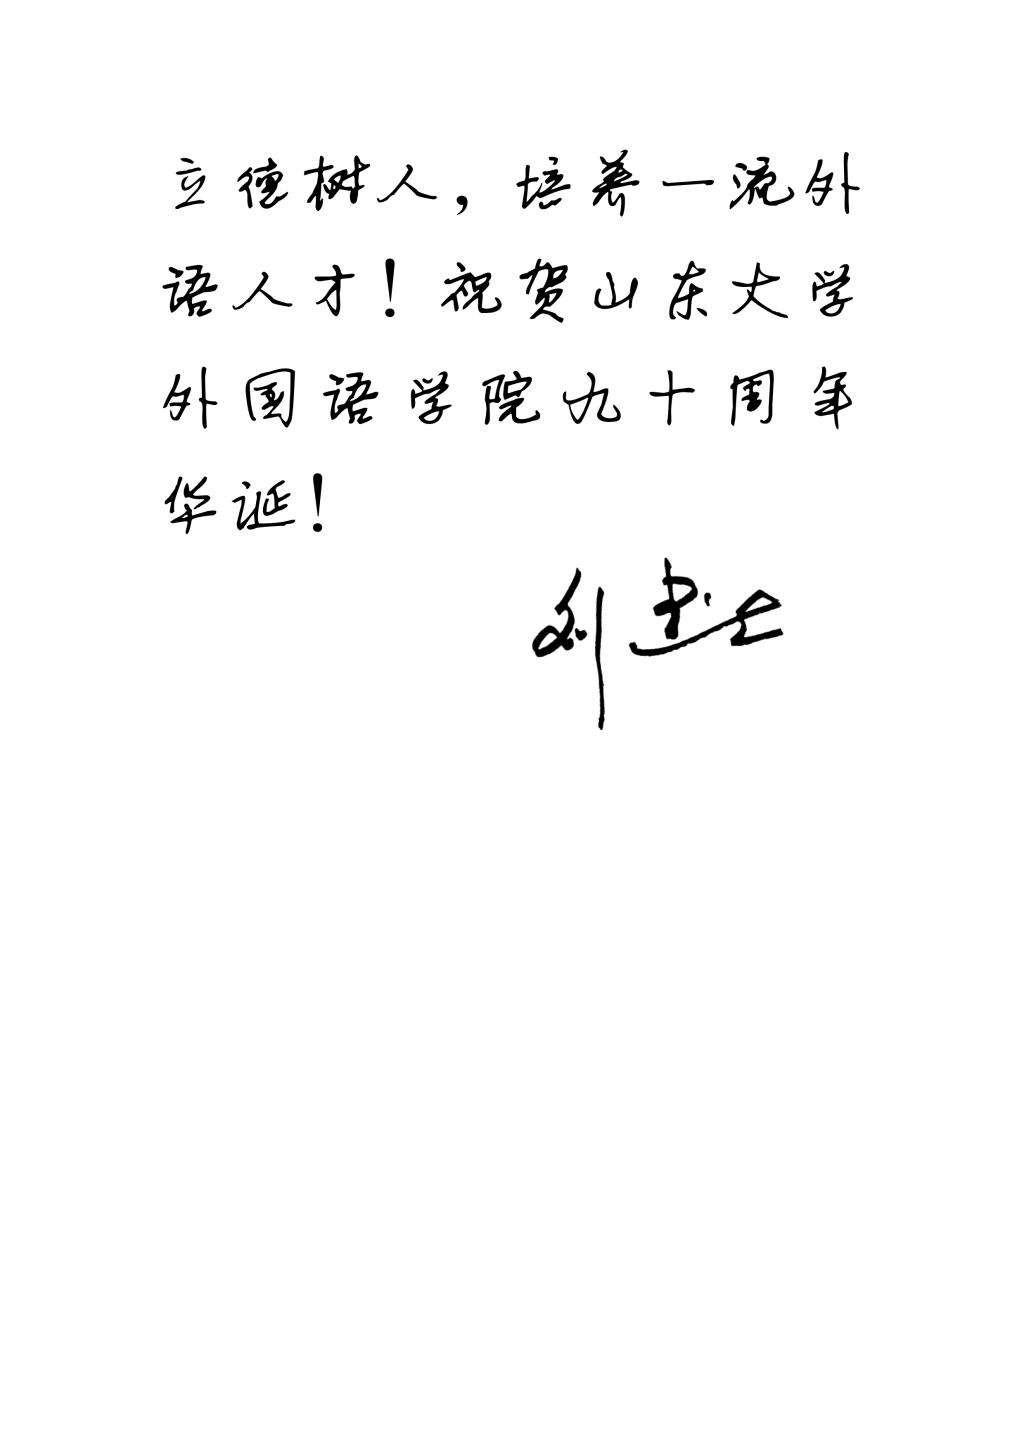 立德树人，培养一流外
语人才！祝贺山东大学
外国语学院九十周年
华诞！